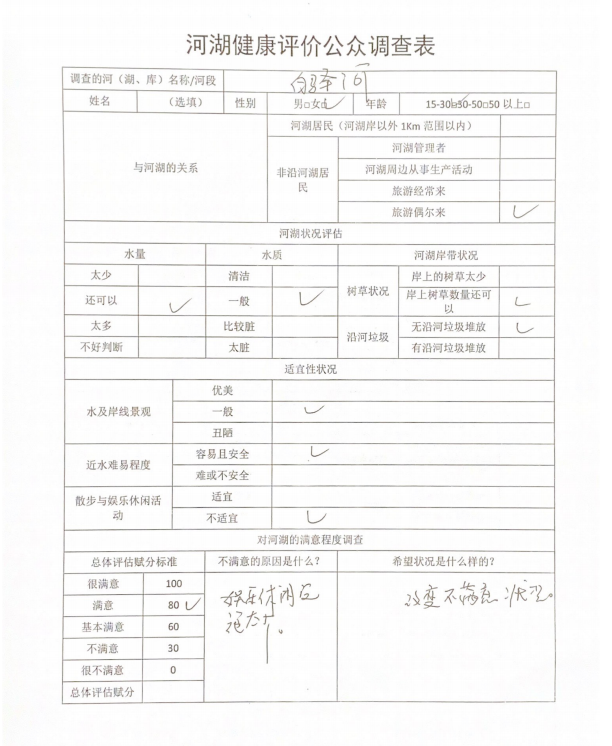 河湖健康评价公众调查表
调查的河（湖、库）名称/河段 河
姓名 （选填） 性别 男□女□✓ 年龄 15-30□30-50□50 以上□
与河湖的关系
河湖居民（河湖岸以外 1Km 范围以内）
非沿河湖居民
河湖管理者
河湖周边从事生产活动
旅游经常来
旅游偶尔来 ✓
河湖状况评估
水量 水质 河湖岸带状况
太少 清洁 树草状况 岸上的树草太少
还可以 ✓ 一般 ✓ 岸上树草数量还可以 ✓
太多 比较脏 沿河垃圾 无沿河垃圾堆放 ✓
不好判断 太脏 有沿河垃圾堆放
适宜性状况
水及岸线景观 优美
一般 ✓
丑陋
近水难易程度 容易且安全 ✓
难或不安全
散步与娱乐休闲活动 适宜
不适宜 ✓
对河湖的满意程度调查
总体评估赋分标准 不满意的原因是什么？ 希望状况是什么样的？
很满意 100
满意 80 ✓
基本满意 60
不满意 30
很不满意 0
总体评估赋分
娱乐休闲区
改变不满意状况。